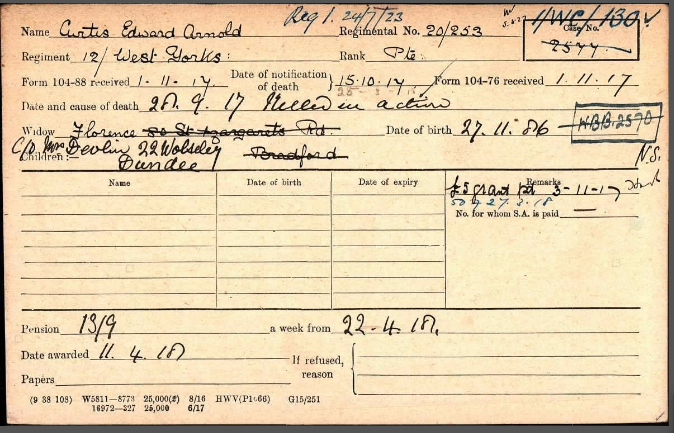 Reg 1. 24/7/23 11/WC/130
Name Curtis Edward Arnold Regimental No. 20/253 Case No.
Regiment 12/ West Yorks: Rank Pte. 2577
Form 104-88 received 1-11-17 Date of notification of death } 15.10.17 Form 104-76 received 1.11.17
Date and cause of death 28.9.17 Killed in action
Widow Florence 50 St Margarets Rd. Date of birth 27.11.86 WBB.2570
C/o. Mrs Devlin 22 Wolseley Bradford N.S.
Children:—
Dundee
Name Date of birth Date of expiry Remarks
£5 grant pd 3-11-17
27.3.18
No. for whom S.A. is paid —
Pension 13/9 a week from 22-4.18.
Date awarded 11.4.18
If refused, reason
Papers
(9 38 108) W5811—8773 25,000(2) 8/16 HWV(P1066) G15/251
16972—327 25,000 6/17